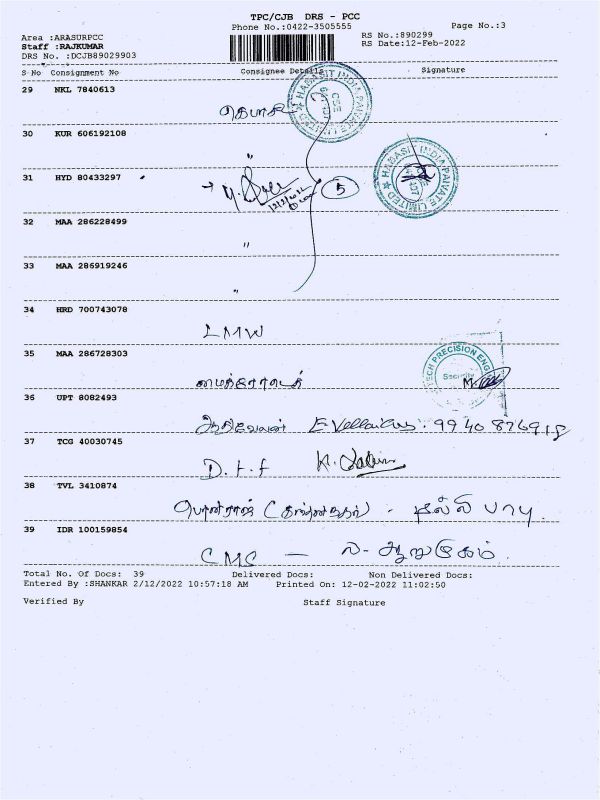 TPC/CJB DRS - PCC
Phone No.:0422-3505555
Page No.:3
Area :ARASURPCC
RS No.:890299
Staff :RAJKUMAR
RS Date:12-Feb-2022
DRS No. :DCJB89029903
S No Consignment No Consignee Details Signature
29 NKL 7840613
30 KUR 606192108
"
31 HYD 80433297
5
32 MAA 286228499
"
33 MAA 286919246
"
34 HRD 700743078
LMW
35 MAA 286728303
36 UPT 8082493
99408 76918
37 TCG 40030745
D.t.f
38 TVL 3410874
பொன்ராஜ் - தில்லி பாபு
39 IDR 100159854
CMS - ல. ஆறுமுகம்.
Total No. Of Docs: 39 Delivered Docs: Non Delivered Docs:
Entered By :SHANKAR 2/12/2022 10:57:18 AM Printed On: 12-02-2022 11:02:50
Verified By Staff Signature
HABASIT INDIA PRIVATE LIMITED
HABASIT INDIA PRIVATE LIMITED
TECH PRECISION ENG
Security